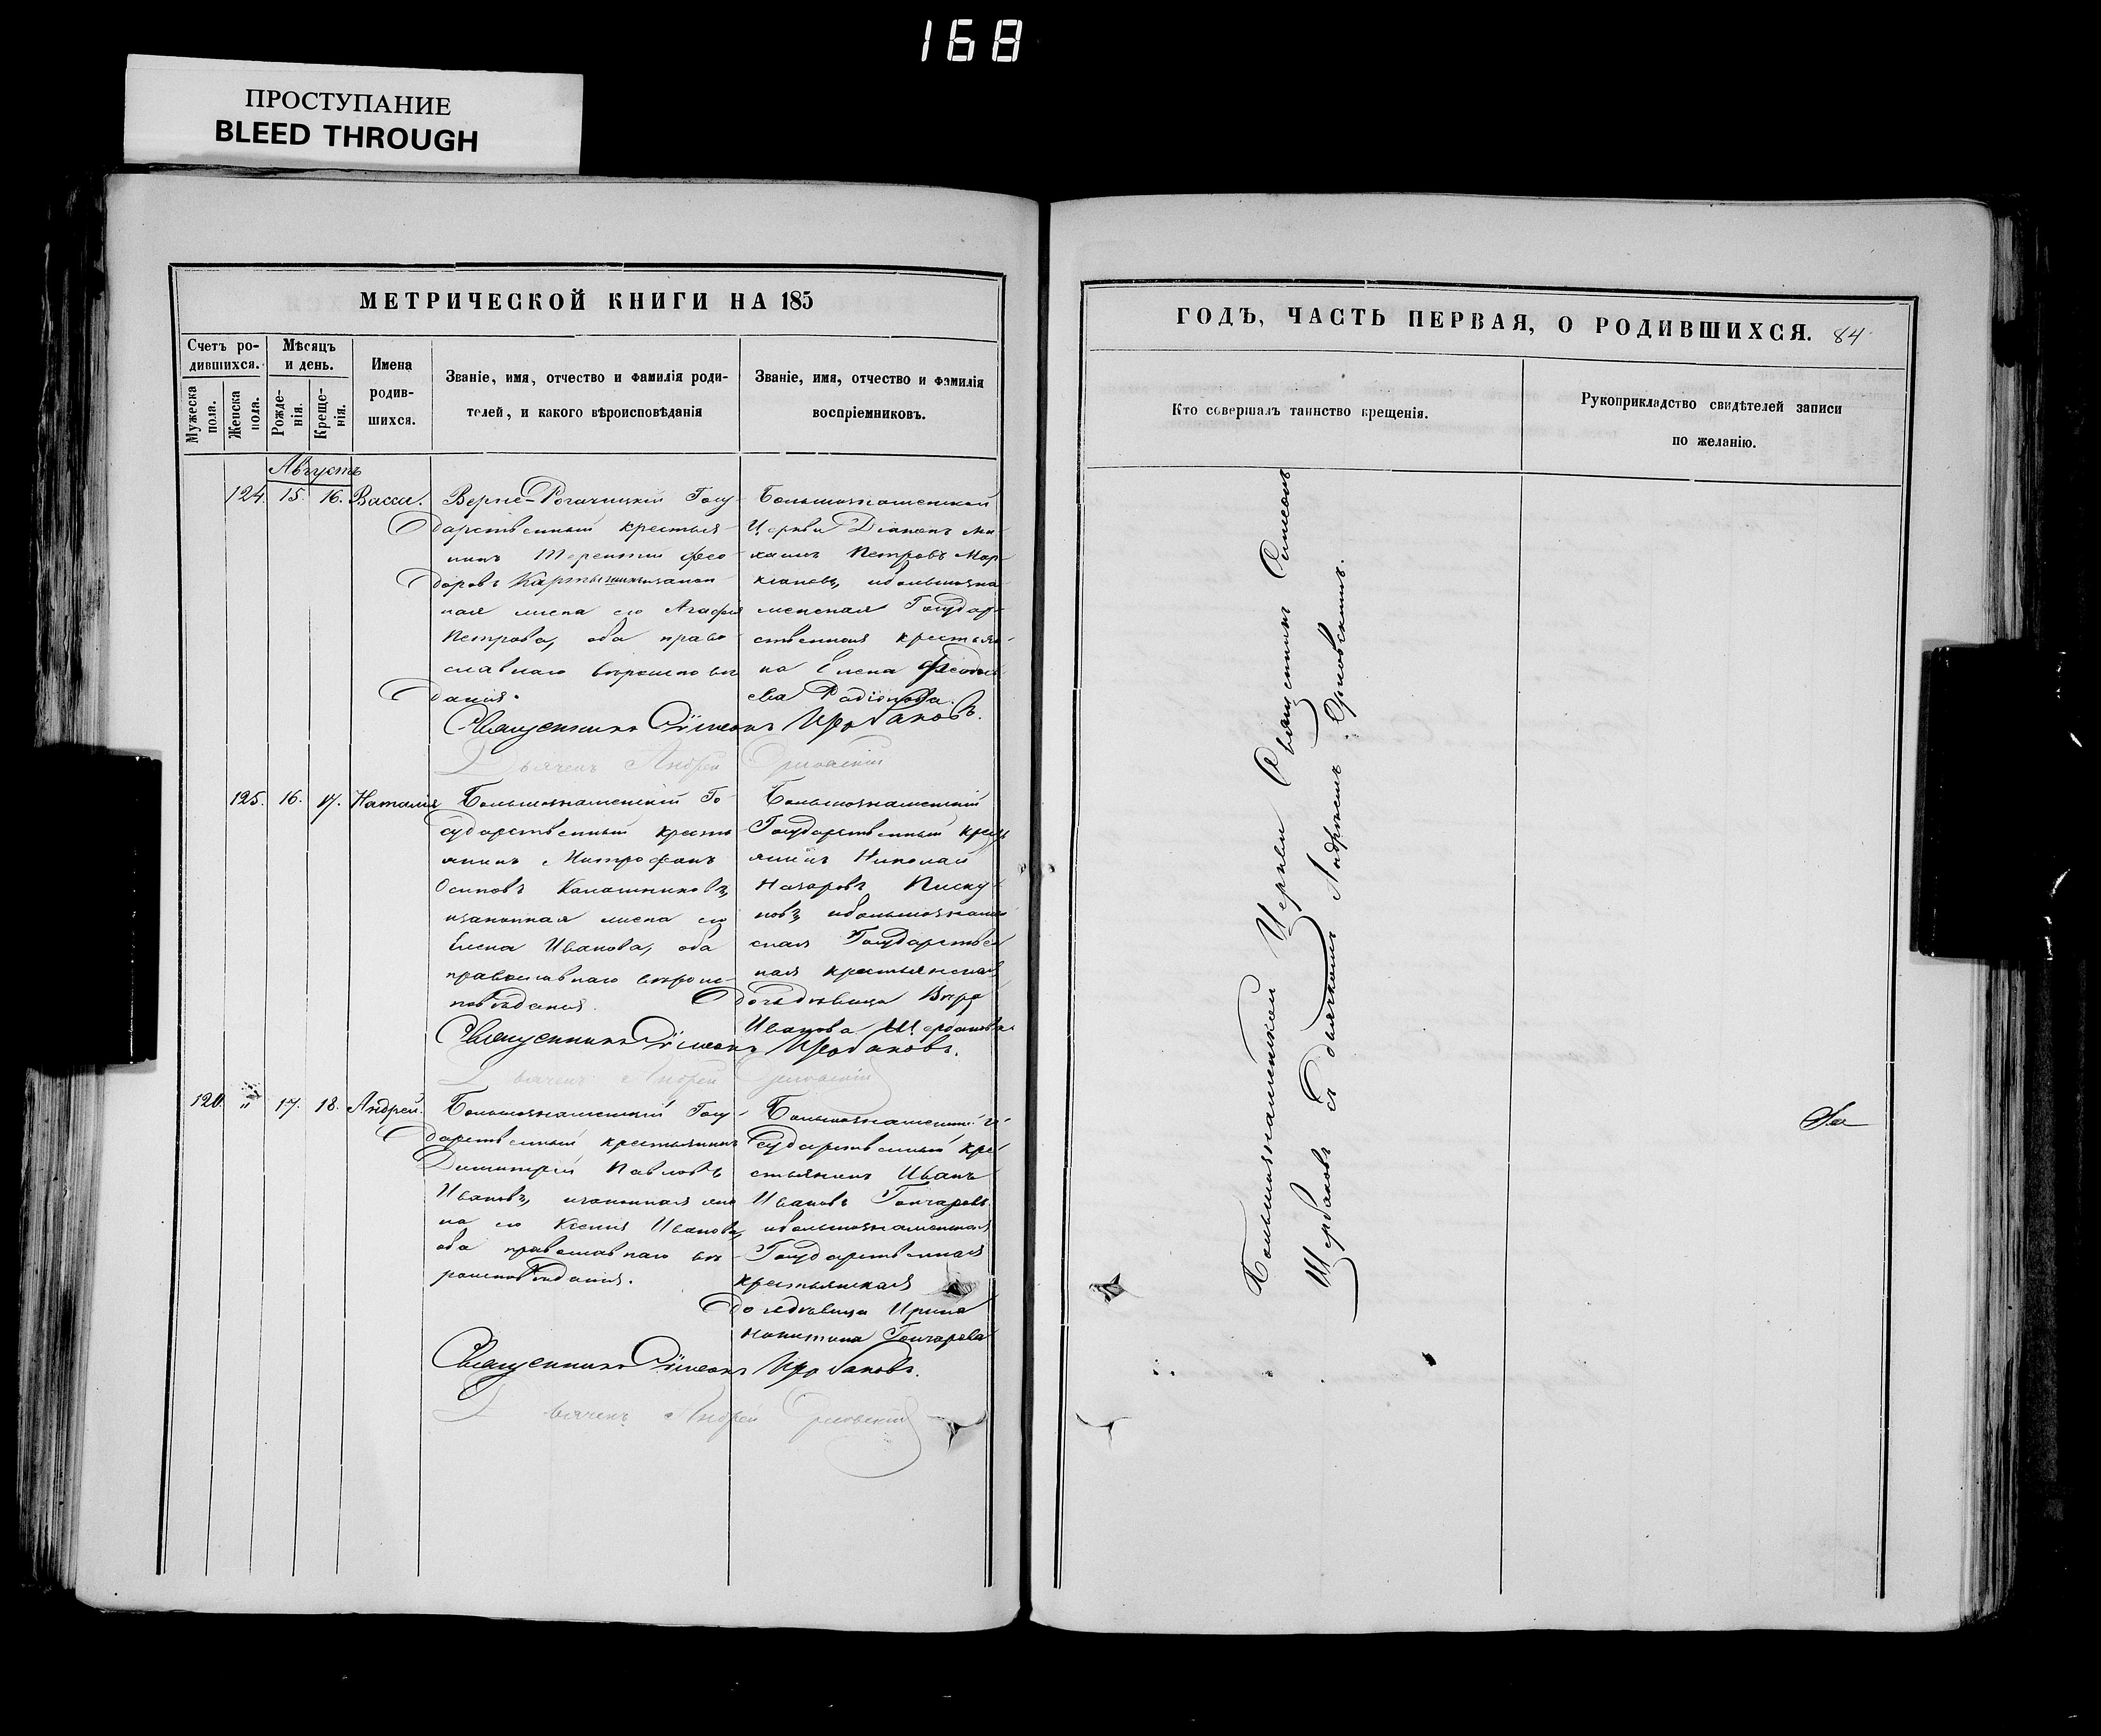 168
ПРОСТУПАНИЕ
BLEED THROUGH
МЕТРИЧЕСКОЙ КНИГИ НА 185
Счетъ ро-
дившихся.
Мужеска
пола.
Женска
пола.
Мѣсяцъ
и день.
Рожде-
нія.
Креще-
нія.
Имена
родив-
шихся.
Званіе, имя, отчество и фамилія роди-
телей, и какого вѣроисповѣданія
Званіе, имя, отчество и фамилія
воспріемниковъ.
Августъ
124. 15. 16. Васса.
Верхне-Рогачицкій Госу-
дарственный крестья-
нинъ Терентій Фео-
доровъ
ная жена его Агафія
Петрова, оба право-
славнаго вѣроисповѣ
данія.
Большознаменской
Церкви Діаконъ Ми-
хаилъ Петровъ Мар-
кіановъ, ибольшозна
менская Государ-
ственная крестьян-
ка Елена Феодосі
ева Радіонова.
Священникъ Сѵмеонъ Щербаковъ.
Дьячекъ Андрей Орловскій
125. 16. 17. Наталія
Большознаменскій Го-
сударственный кресть
янинъ Митрофанъ
Осиповъ Калашниковъ,
изаконная жена его
Елена Иванова, оба
православнаго вѣроис-
повѣданія.
Большознаменскій
Государственный крест
янинъ Николай
Назаровъ Писку-
новъ, ибольшознамен
ская Государствен
ная крестьянская
дочьдѣвица Вѣра
Иванова Щербакова
Священникъ Сѵмеонъ Щербаковъ.
Дьячекъ Андрей Орловскій
120. " 17. 18. Андрей.
Большознаменскій Госу-
дарственный крестьянинъ
Димитрій Павловъ
Ивановъ, изаконная же
на его Ксенія Иванова,
оба православнаго вѣ-
роисповѣданія.
Большознаменскій Го-
сударственный кре-
стьянинъ Иванъ
Ивановъ Гончаровъ
ибольшознаменская
Государственная
крестьянская
дочьдѣвица Ирина
Никитина Гончарова
Священникъ Сѵмеонъ Щербаковъ.
Дьячекъ Андрей Орловскій
ГОДЪ, ЧАСТЬ ПЕРВАЯ, О РОДИВШИХСЯ. 84
Кто совершалъ таинство крещенія.
Рукоприкладство свидѣтелей записи
по желанію.
Большознаменской Церкви Священникъ Симеонъ
Щербаковъ съ дьячкомъ Андреемъ Орловскимъ.